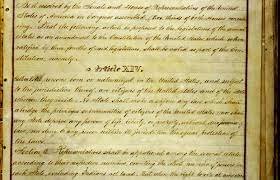 Be it resolved by the Senate and House of Representatives of the United
States of America in Congress assembled, two thirds of both Houses concur
ring, That the following article be proposed to the legislatures of the several
States as an amendment to the Constitution of the United States, which when
ratified by three fourths of said legislatures shall be valid as part of the Con
stitution, namely:
Article XIV.
Section persons born or naturalized in the United States, and subject
to the jurisdiction thereof, are citizens of the United States and of the State
wherein they reside. No State shall make or enforce any law which shall
abridge the privileges or immunities of citizens of the United States; nor shall
any State deprive any person of life, liberty, or property, without due process of
law, nor deny to any person within its jurisdiction the equal protection of
the laws.
Section 2. Representatives shall be apportioned among the several States
according to their respective numbers, counting the whole number of persons
in each State, excluding Indians not taxed. But when the right to vote at any